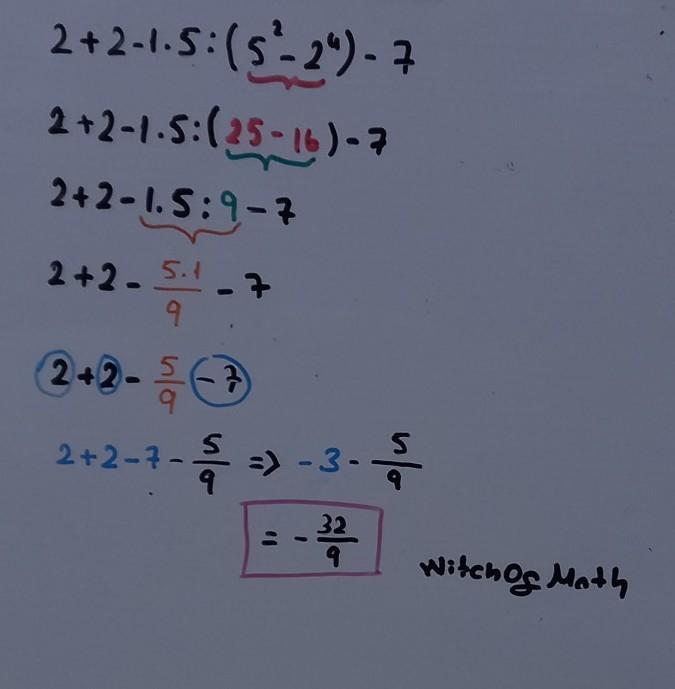 2+2-1.5:(5²-2⁴)-7
2+2-1.5:(25-16)-7
2+2-1.5:9-7
2+2-5.1/9-7
2+2-5/9-7
2+2-7-5/9=>-3-5/9
=-32/9
WitchOfMath